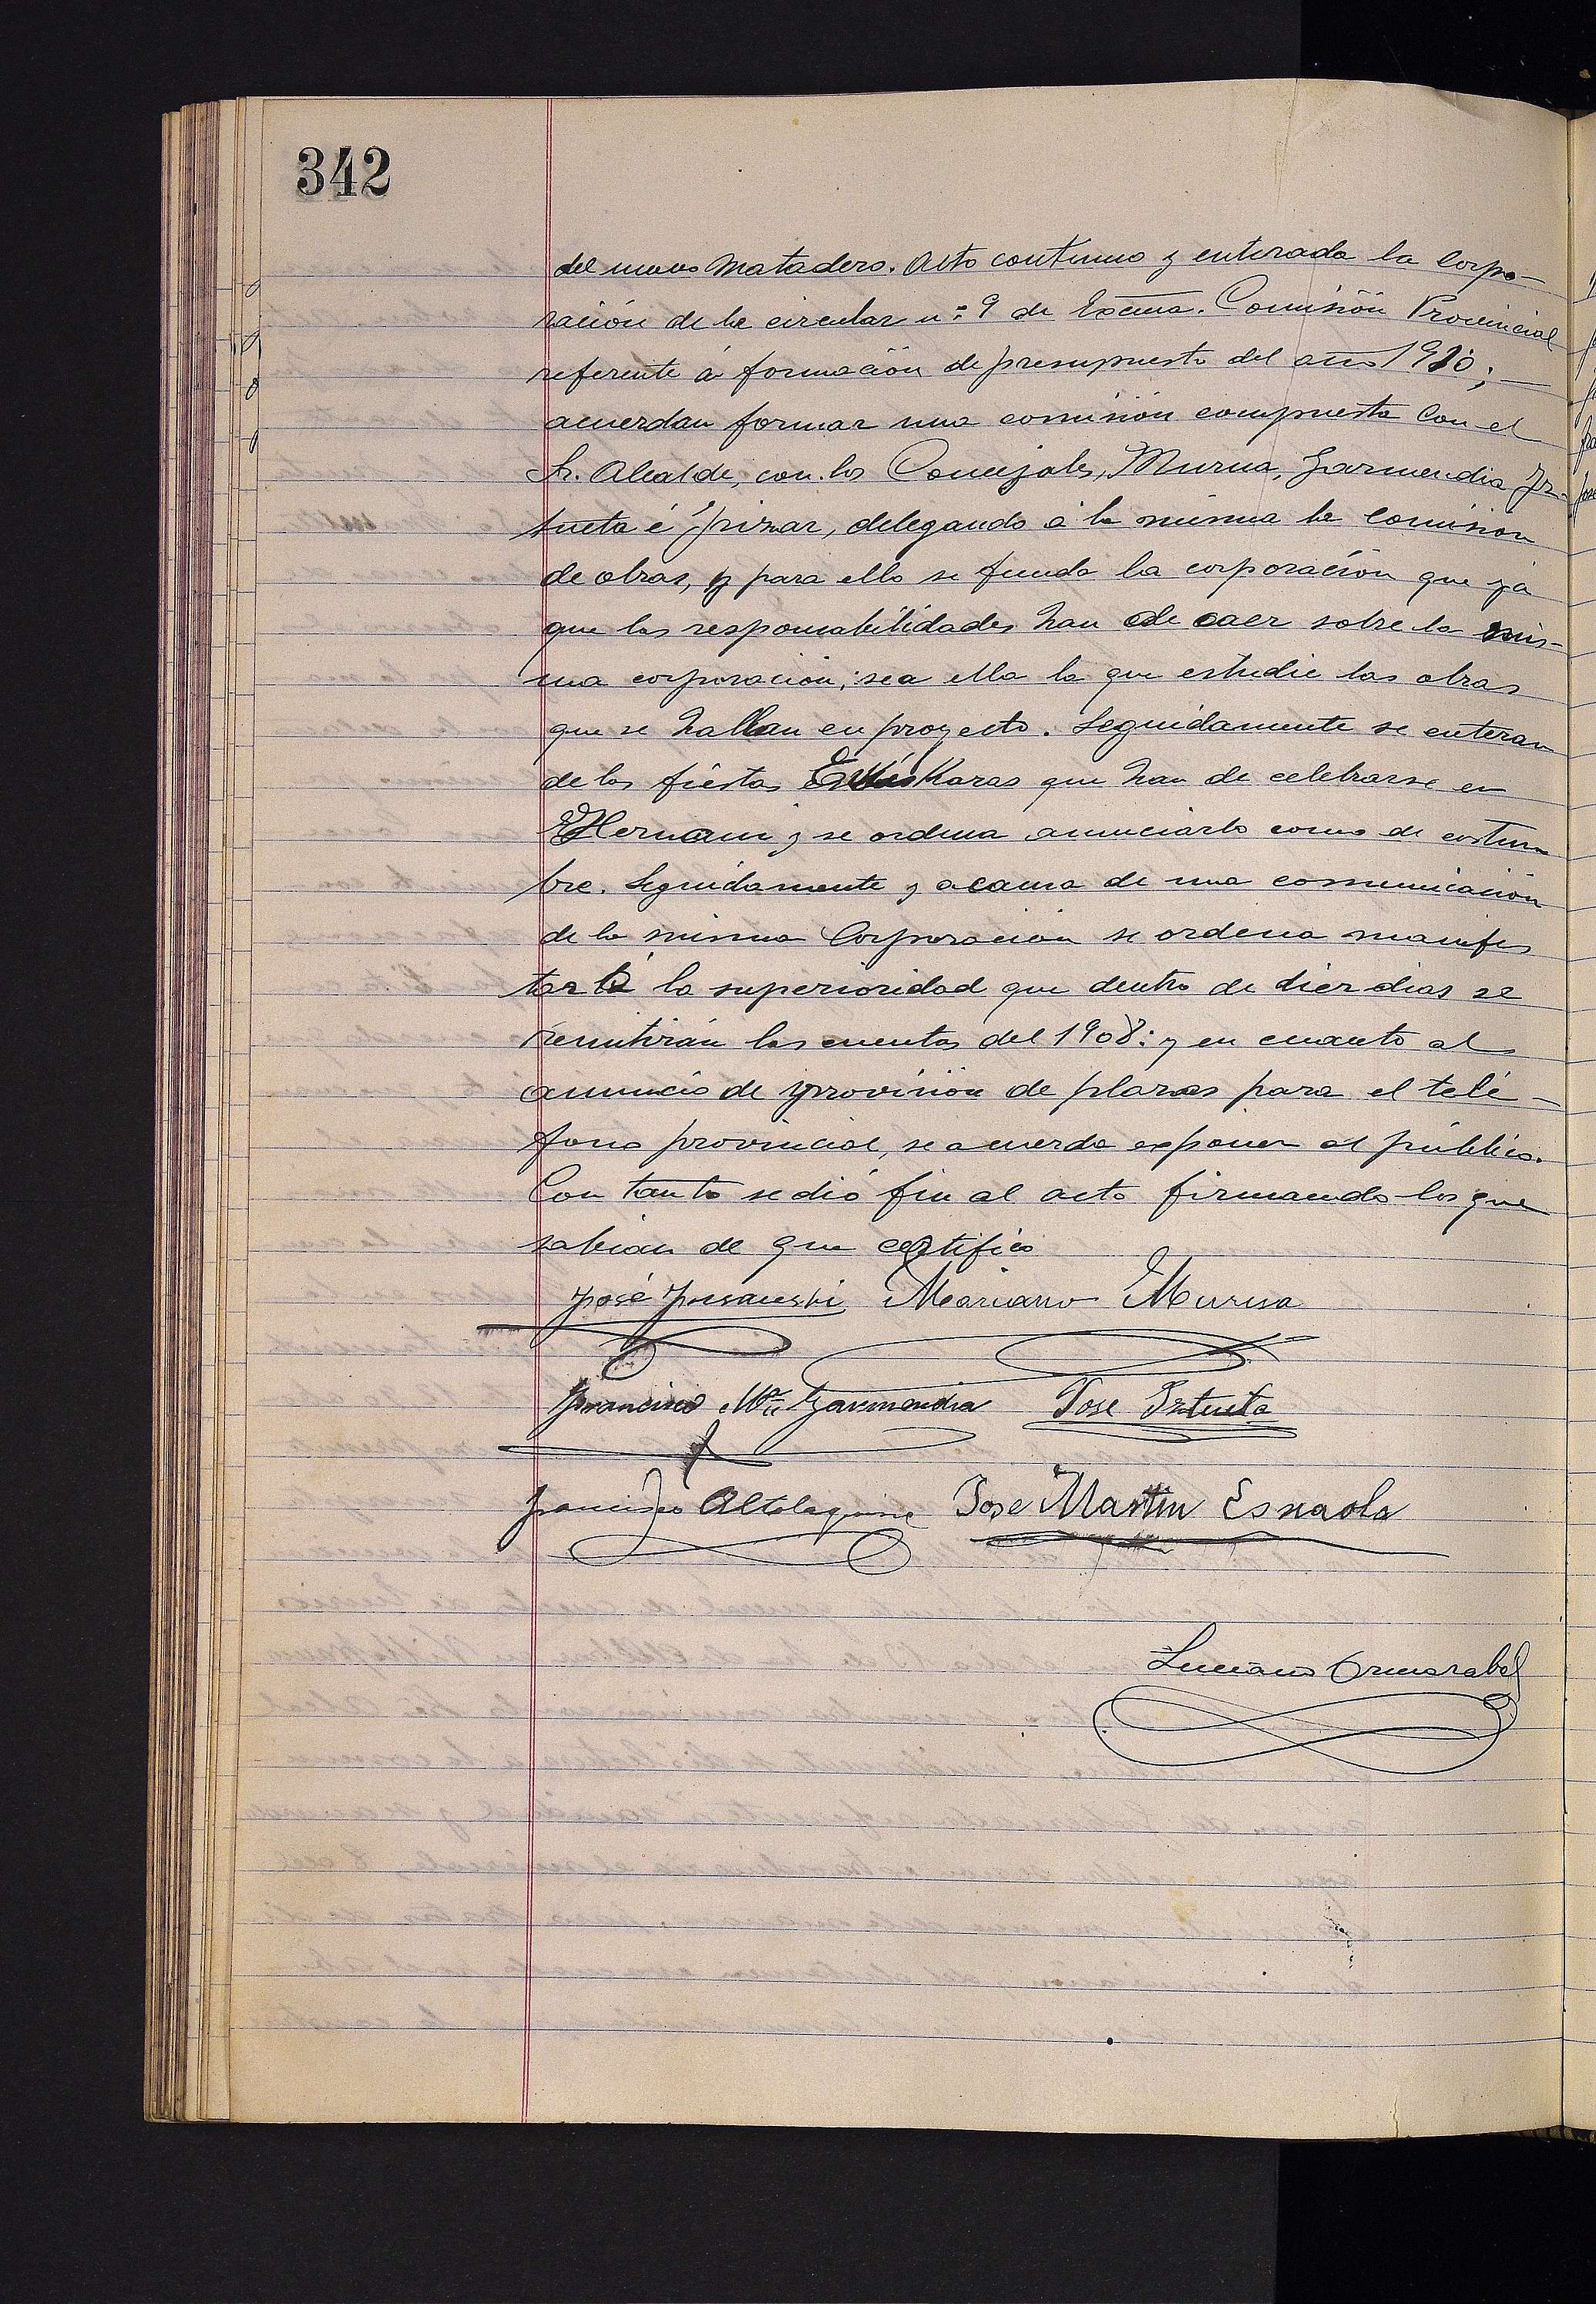 342
del nuevo Matadero. Acto continuo y enterada la Corpo-
ración de la circular n.º 9 de Excma. Comisión Provincial
referente á formación de presupuesto del año 1910;
acuerdan formar una comisión compuesta Con el
Sr. Alcalde, con los Concejales, Murua, Garmendia Iz-
tueta é Irizar, delegando á la misma la comision
de obras, y para ello se funda la corporación que ya
que las responsabilidades han de caer sobre la mis-
ma corporación; sea ella la que estudie las obras
que se hallan en proyecto. Seguidamente se enteran
de las fiestas Euskaras que han de celebrarse en
Hernani y se ordena anunciarlo como de costum
bre. Seguidamente y a causa de una comunicación
de la misma Corporación se ordena manifes
tar á la superioridad que dentro de diez dias se
remitirán las cuentas del 1908: y en cuanto al
anuncio de provisión de plazas para el telé-
fono provincial, se acuerda exponer al público.
Con tanto se dió fin al acto firmando los que
sabian de que certifico
José Mariano Murua
Francisco Mª Garmendia Jose Iztueta
Francisco Altolaguirre Jose Martin Esnaola
Luciano Ormazabal